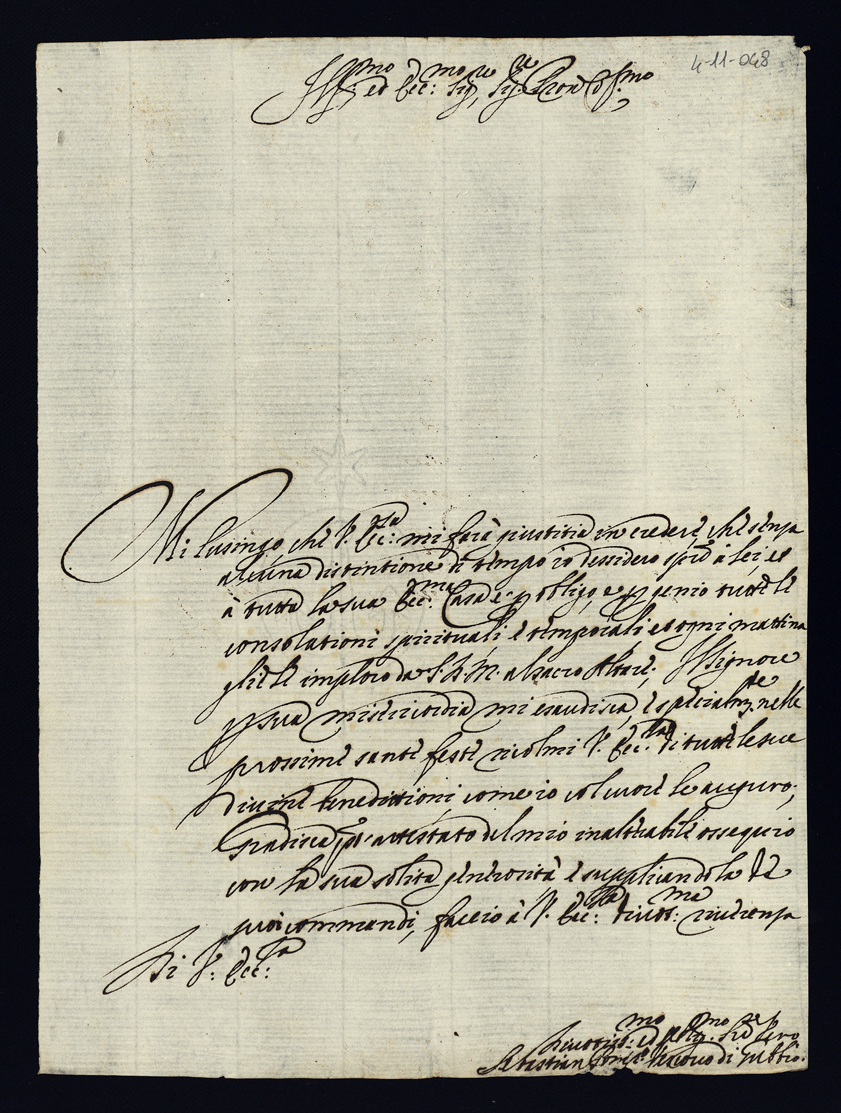 4-11-048
Ill:mo ed Ecc:mo Sig.re Sig.re Pron Col.mo
Mi lusingo, che V. Ecc:za mi farà giustitia in credere, che senza
alcuna distintione di tempo io dessidero à lei, et
à tutta la sua Ecc:ma Casa e p obligo, e p genio tutte le
consolationi spirituali, e temporali, et ogni mattina
gliele imploro da S.D.M. al sacro Altare; Il Signore
p sua misericordia mi esaudisca, e specialm.te nelle
prossime sante feste ricolmi V. Ecc:za di tutte le sue
divine benedittioni come io col cuore le auguro;
Gradisca attestato del mio inalterabile ossequio
con la sua solita generosità, e supplicandola de
suoi commandi, faccio à V. Ecc:za divot:ma riverenza
Di V. Ecc:za
Divotiss:mo ed obblig:mo Ser.re vero
Sebastiano Vescovo di Gubbio.